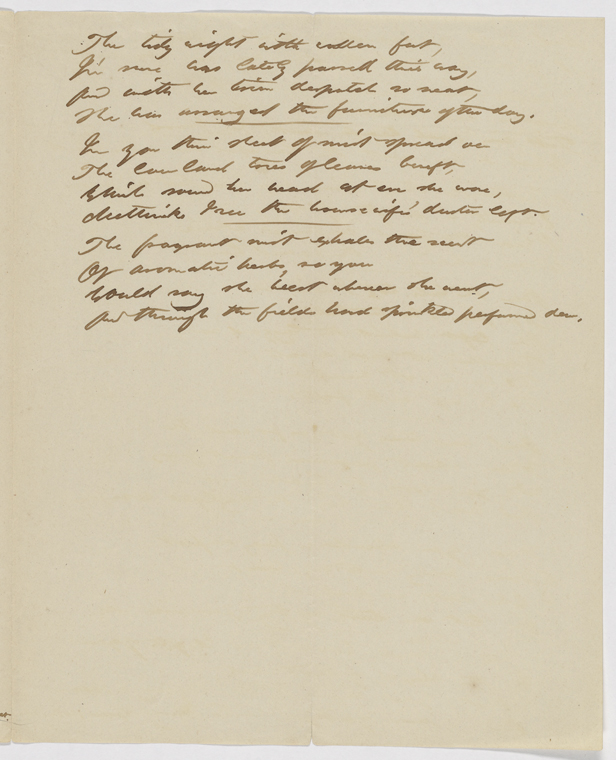 The tidy night with woollen feet,
I'm sure has lately passed this way,
And with her trim despatch so neat,
She has arranged the furniture of the day.
In yon thin sheet of mist spread on
The Low Land trees of leaves bereft,
While round her head at eve she wore,
Methinks I see the housewife's duster left.
The fragrant mist exhales the scent
Of aromatic herbs, so you
Would say she where she went,
And through the fields had sprinkled perfumed dew.